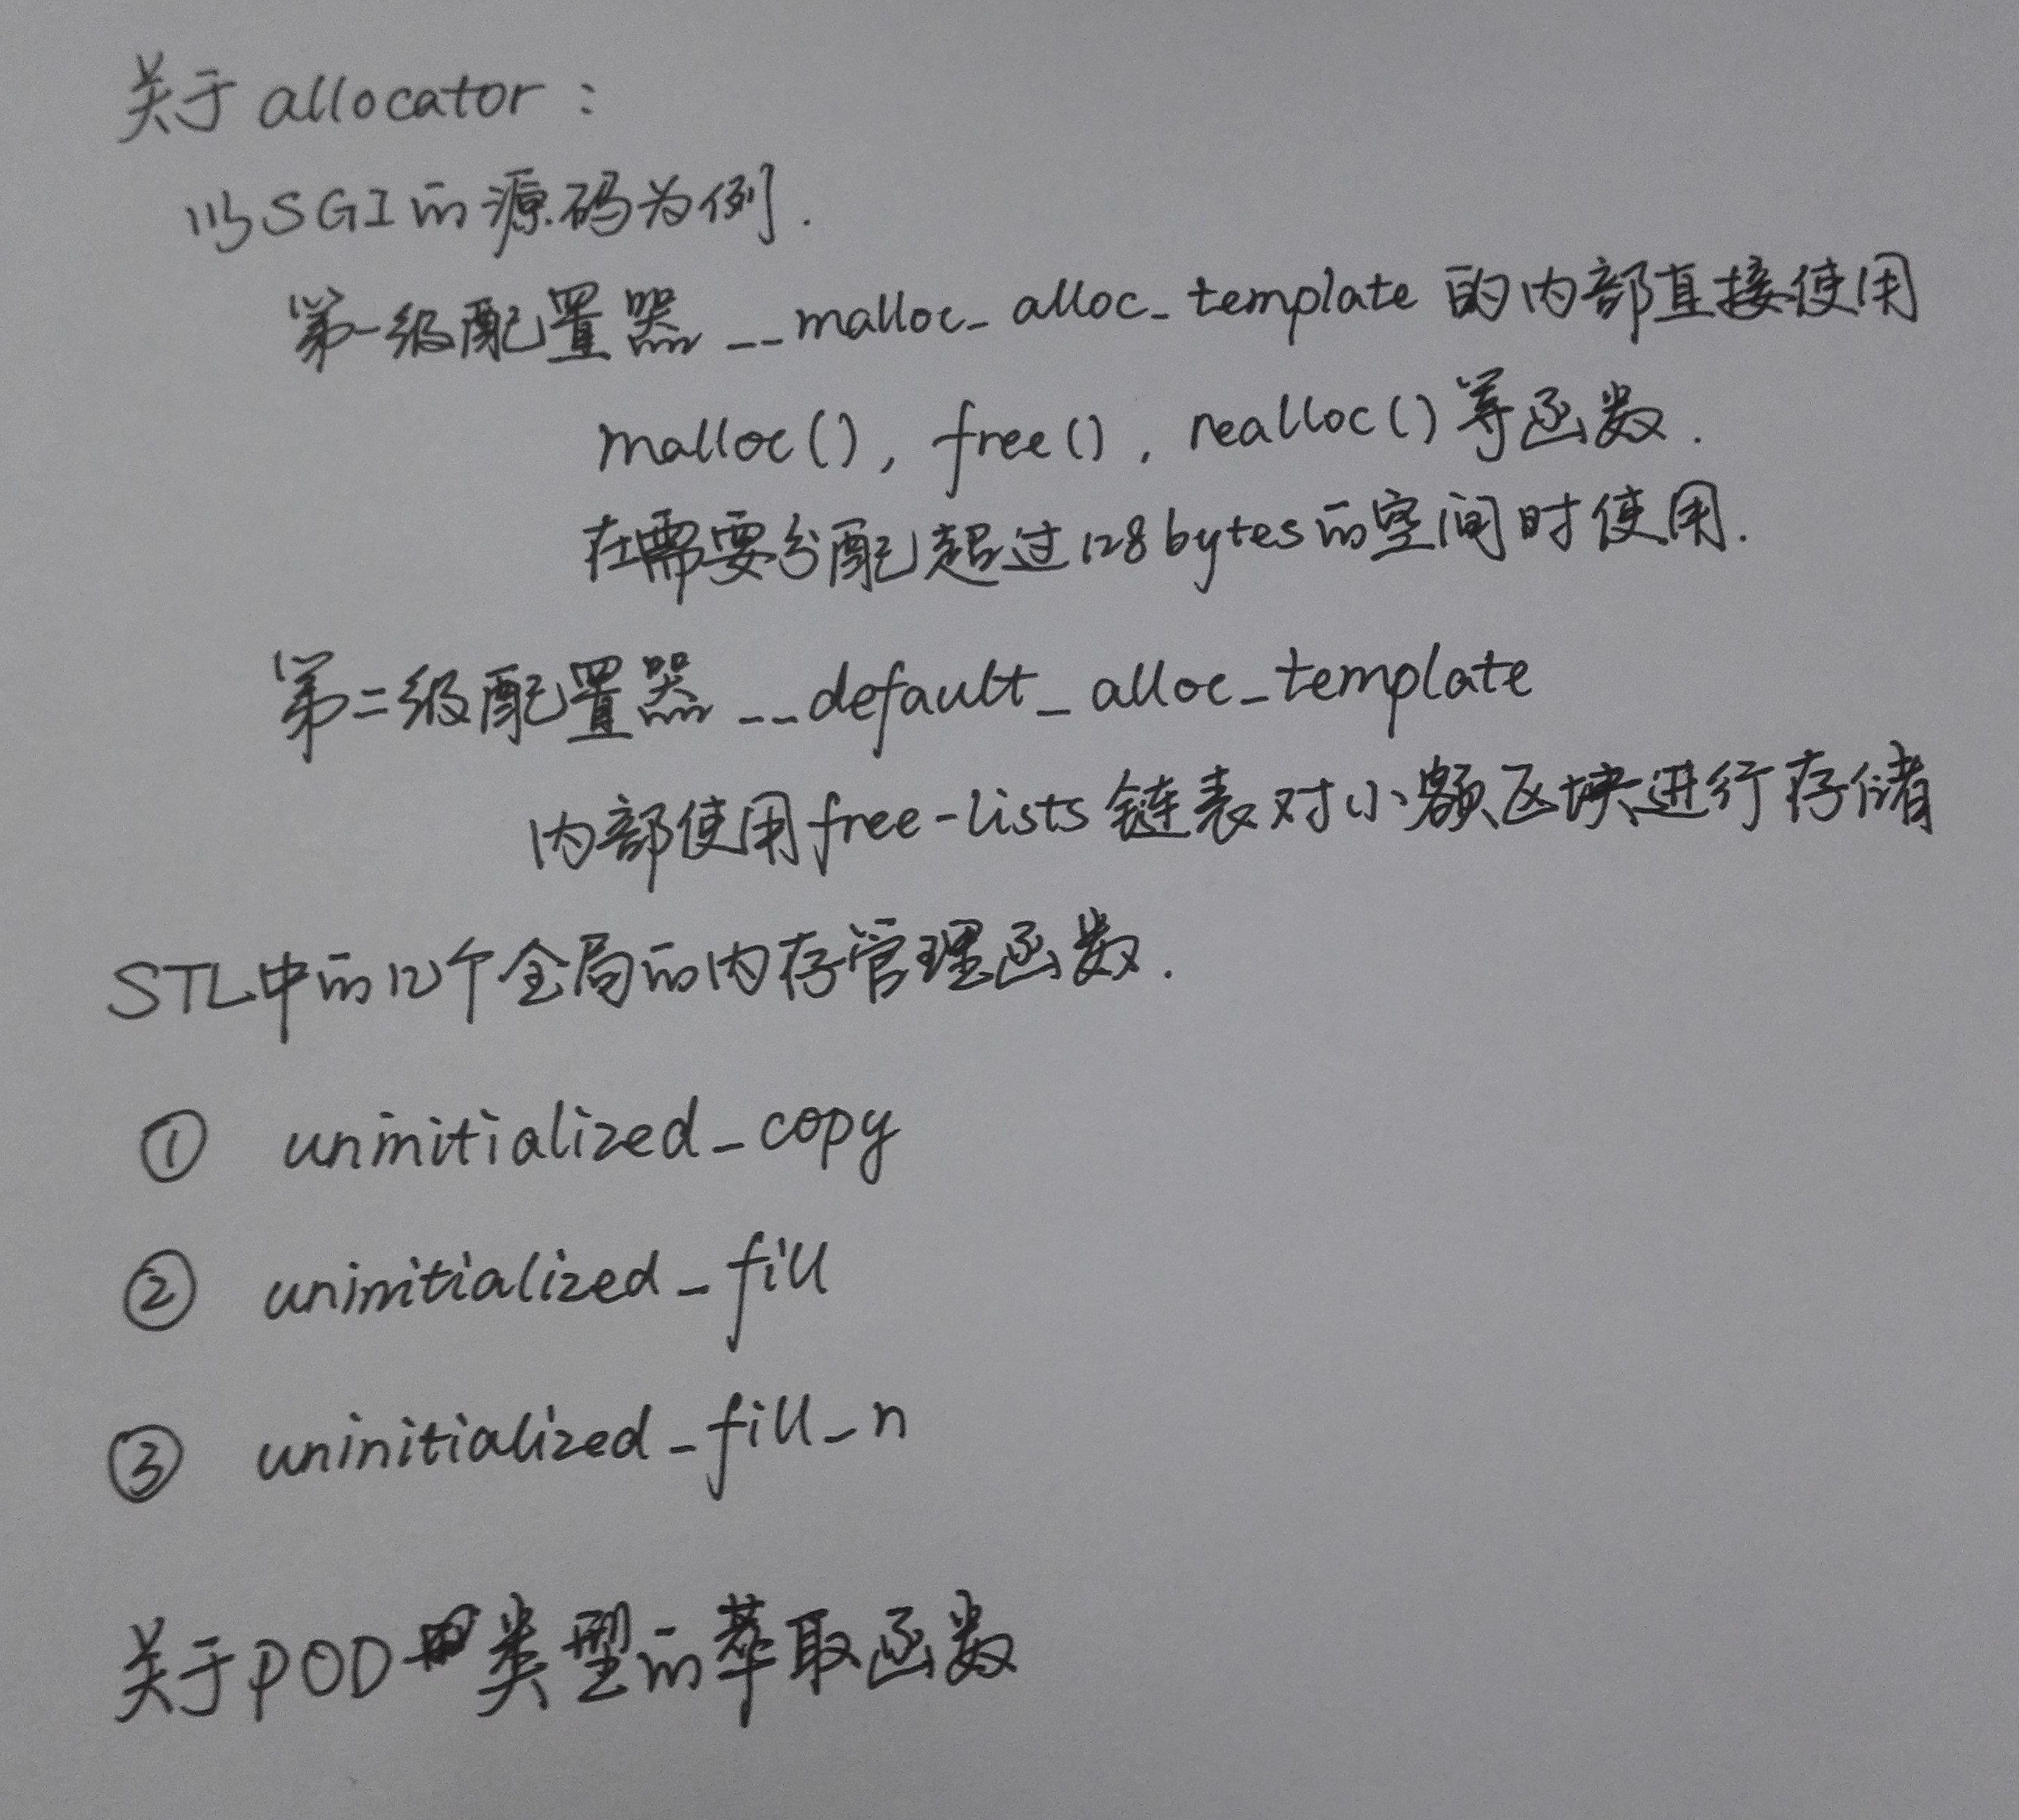 关于allocator：
以SGI的源码为例.
第一级配置器 __malloc_alloc_template 的内部直接使用
malloc(), free(), realloc()等函数.
在需要分配超过128bytes的空间时使用.
第二级配置器 __default_alloc_template
内部使用free-lists链表对小额区块进行存储
STL中的12个全局的内存管理函数.
① uninitialized_copy
② uninitialized_fill
③ uninitialized_fill_n
关于POD类型的萃取函数